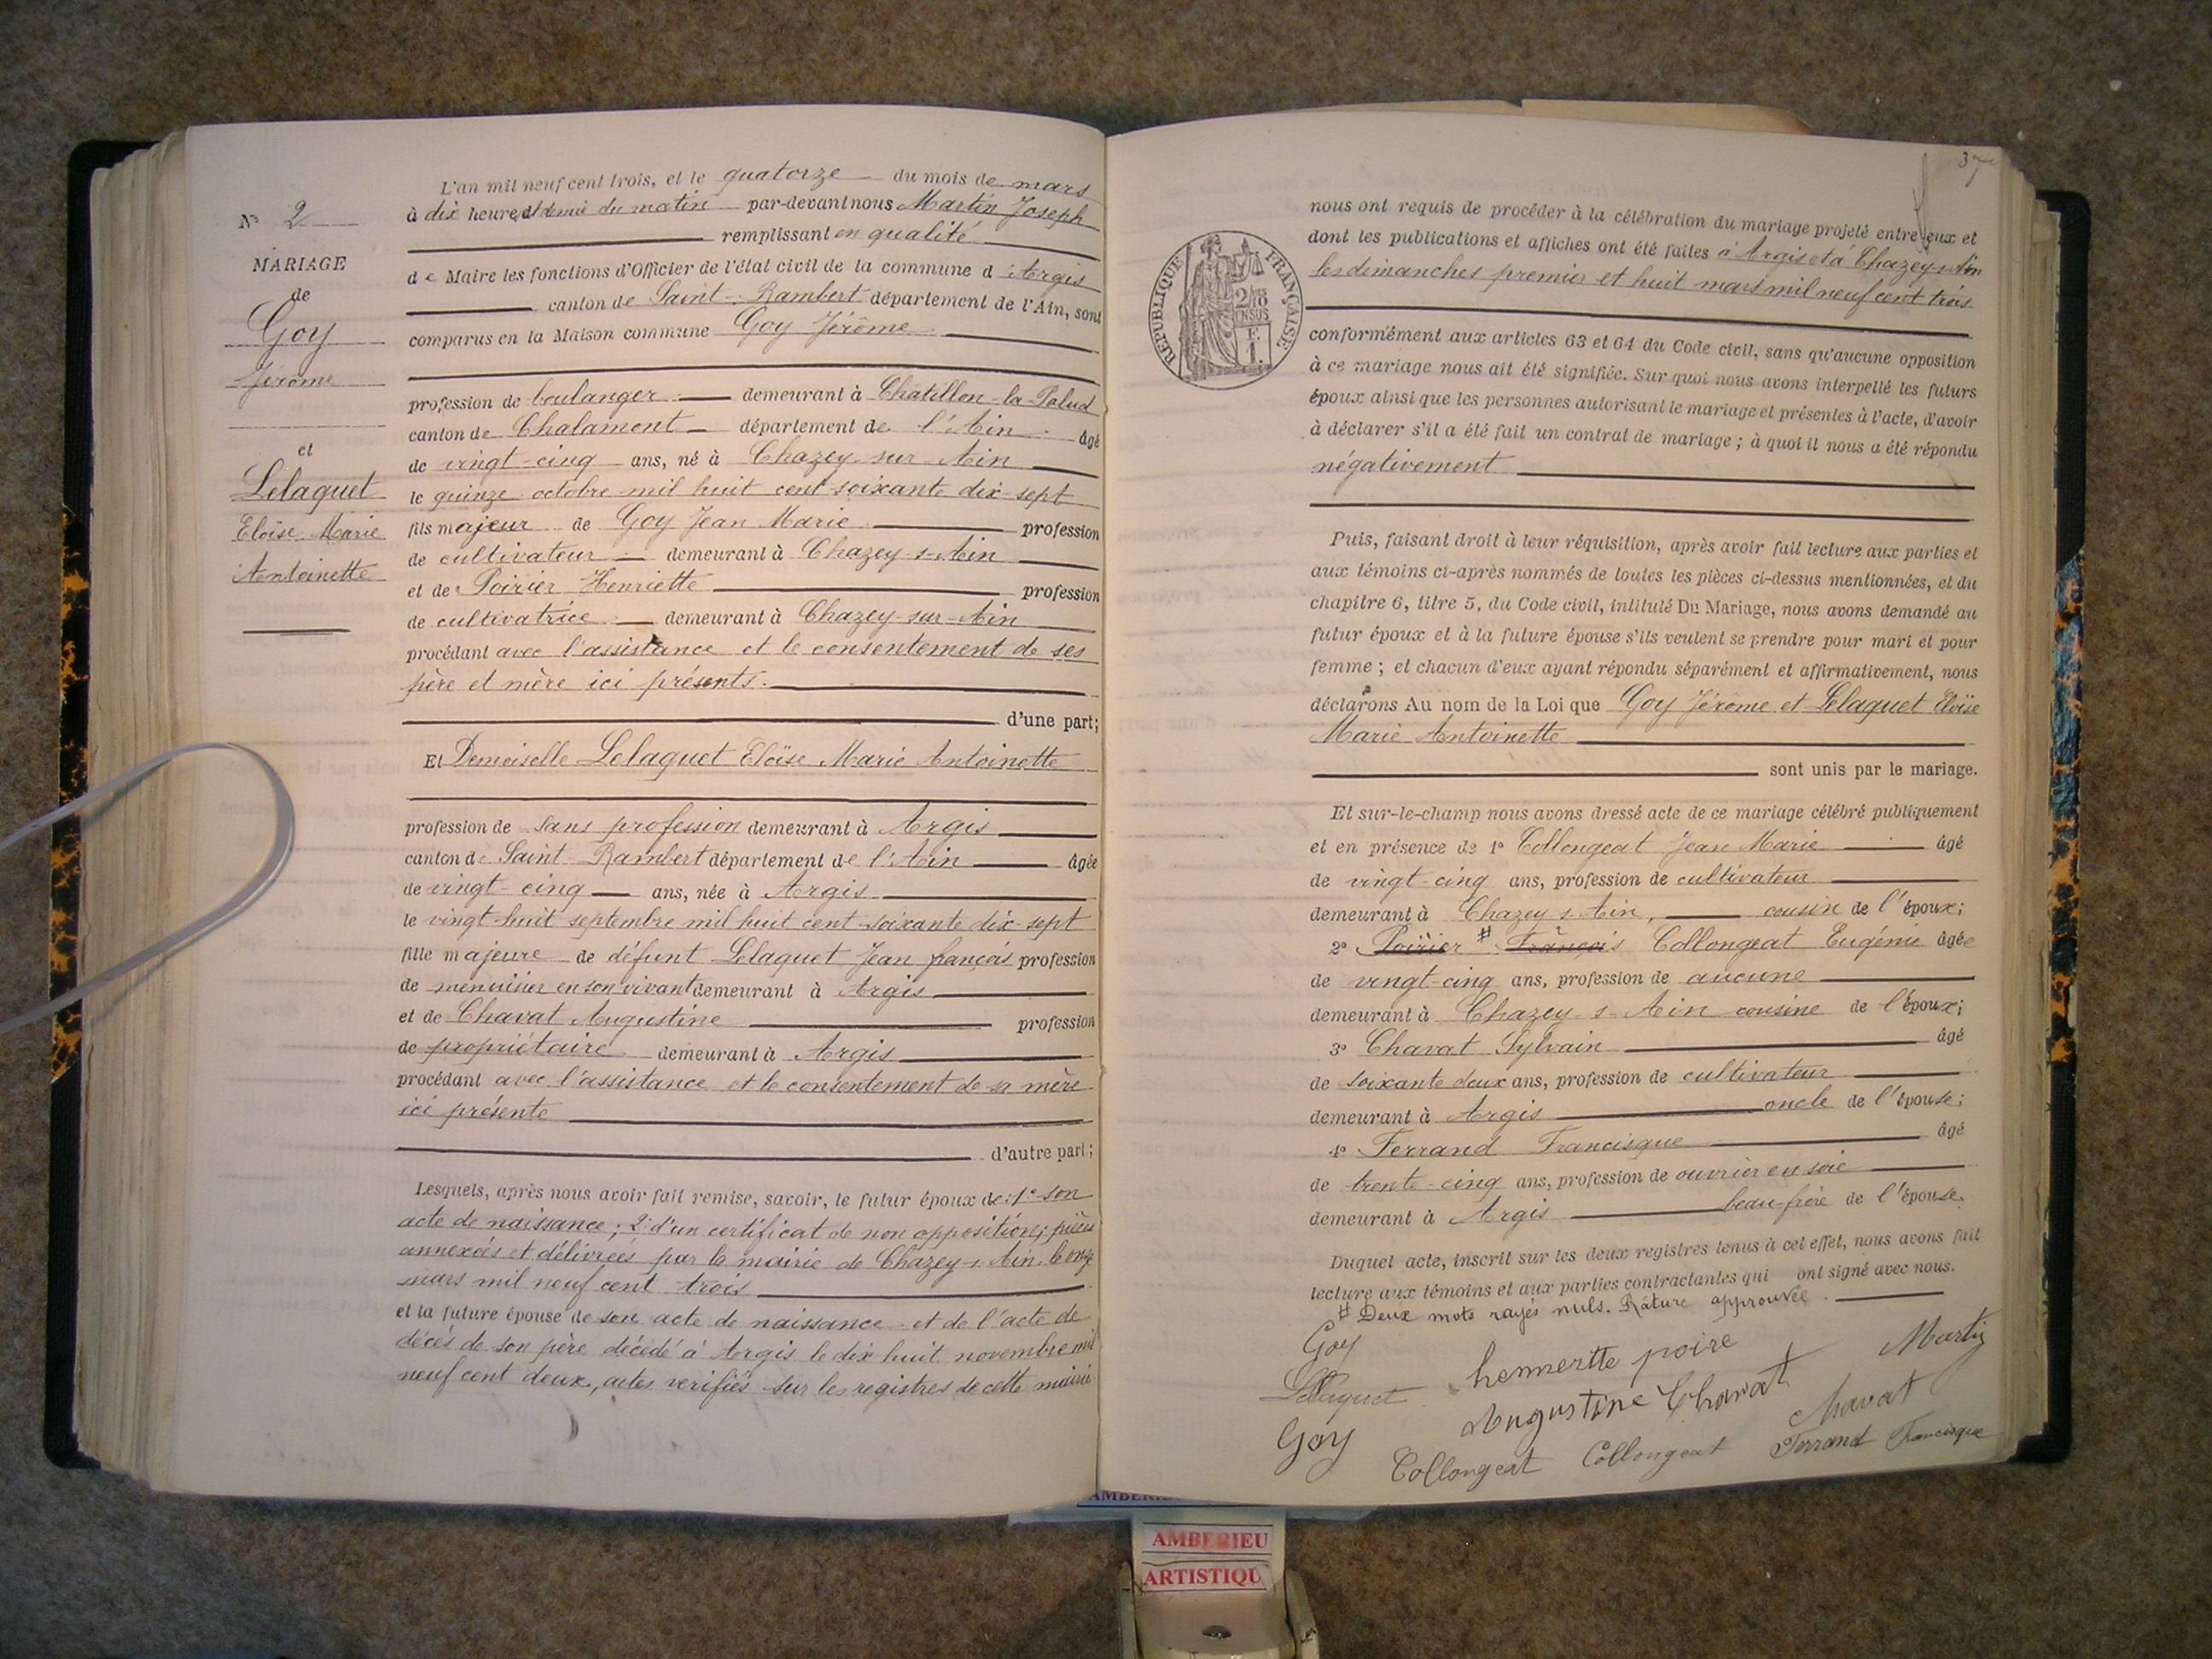 N° 2
MARIAGE
de
Goy
Jérôme
et
Lelaquet
Eloïse Marie
Antoinette
L'an mil neuf cent trois, et le quatorze du mois de mars
à dix heures et demie du matin par-devant nous Martin Joseph
remplissant en qualité
de Maire les fonctions d'Officier de l'état civil de la commune d'Argis
canton de Saint-Rambert département de l'Ain, sont
comparus en la Maison commune Goy Jérôme
profession de boulanger demeurant à Chatillon-la-Palud
canton de Chalamont département de l'Ain âgé
de vingt-cinq ans, né à Chazey sur Ain
le quinze octobre mil huit cent soixante dix-sept
fils majeur de Goy Jean Marie profession
de cultivateur demeurant à Chazey-s-Ain
et de Poirier Henriette profession
de cultivatrice demeurant à Chazey-sur-Ain
procédant avec l'assistance et le consentement de ses
père et mère ici présents.
d'une part;
Et Demoiselle Lelaquet Eloïse Marie Antoinette
profession de sans profession demeurant à Argis
canton de Saint-Rambert département de l'Ain âgée
de vingt-cinq ans, née à Argis
le vingt-huit septembre mil huit cent soixante dix-sept
fille majeure de défunt Lelaquet Jean françois profession
de menuisier en son vivant demeurant à Argis
et de Chavat Augustine profession
de propriétaire demeurant à Argis
procédant avec l'assistance et le consentement de sa mère
ici présente
d'autre part;
Lesquels, après nous avoir fait remise, savoir, le futur époux de: 1° son
acte de naissance; 2° d'un certificat de non opposition; pièces
annexées et délivrées par la mairie de Chazey-s-Ain, le onze
mars mil neuf cent trois
et la future épouse de son acte de naissance et de l'acte de
décès de son père décédé à Argis le dix huit novembre mil
neuf cent deux, actes vérifiés sur les registres de cette mairie
37
RÉPUBLIQUE FRANÇAISE
nous ont requis de procéder à la célébration du mariage projeté entre eux et
dont les publications et affiches ont été faites à Argis et à Chazey-s-Ain
les dimanches premier et huit mars mil neuf cent trois
conformément aux articles 63 et 64 du Code civil, sans qu'aucune opposition
à ce mariage nous ait été signifiée. Sur quoi nous avons interpellé les futurs
époux ainsi que les personnes autorisant le mariage et présentes à l'acte, d'avoir
à déclarer s'il a été fait un contrat de mariage; à quoi il nous a été répondu
négativement
Puis, faisant droit à leur réquisition, après avoir fait lecture aux parties et
aux témoins ci-après nommés de toutes les pièces ci-dessus mentionnées, et du
chapitre 6, titre 5, du Code civil, intitulé Du Mariage, nous avons demandé au
futur époux et à la future épouse s'ils veulent se prendre pour mari et pour
femme; et chacun d'eux ayant répondu séparément et affirmativement, nous
déclarons Au nom de la Loi que Goy Jérôme et Lelaquet Eloïse
Marie Antoinette
sont unis par le mariage.
Et sur-le-champ nous avons dressé acte de ce mariage célébré publiquement
et en présence de 1° Collongeat Jean Marie âgé
de vingt-cinq ans, profession de cultivateur
demeurant à Chazey s Ain, cousin de l'époux;
2° Poirier # François Collongeat Eugénie âgée
de vingt-cinq ans, profession de aucune
demeurant à Chazey-s-Ain cousine de l'époux;
3° Chavat Sylvain âgé
de soixante deux ans, profession de cultivateur
demeurant à Argis oncle de l'épouse;
4° Ferrand Francisque âgé
de trente-cinq ans, profession de ouvrier en soie
demeurant à Argis beau-frère de l'épouse.
Duquel acte, inscrit sur les deux registres tenus à cet effet, nous avons fait
lecture aux témoins et aux parties contractantes qui ont signé avec nous.
# Deux mots rayés nuls. Rature approuvée.
Goy
hennertte poire
Martin
Lelaquet
Augustine Chavat
Chavat
Goy
Collongeat
Collongeat
Ferrand Francisque
AMBERIEU
ARTISTIQU